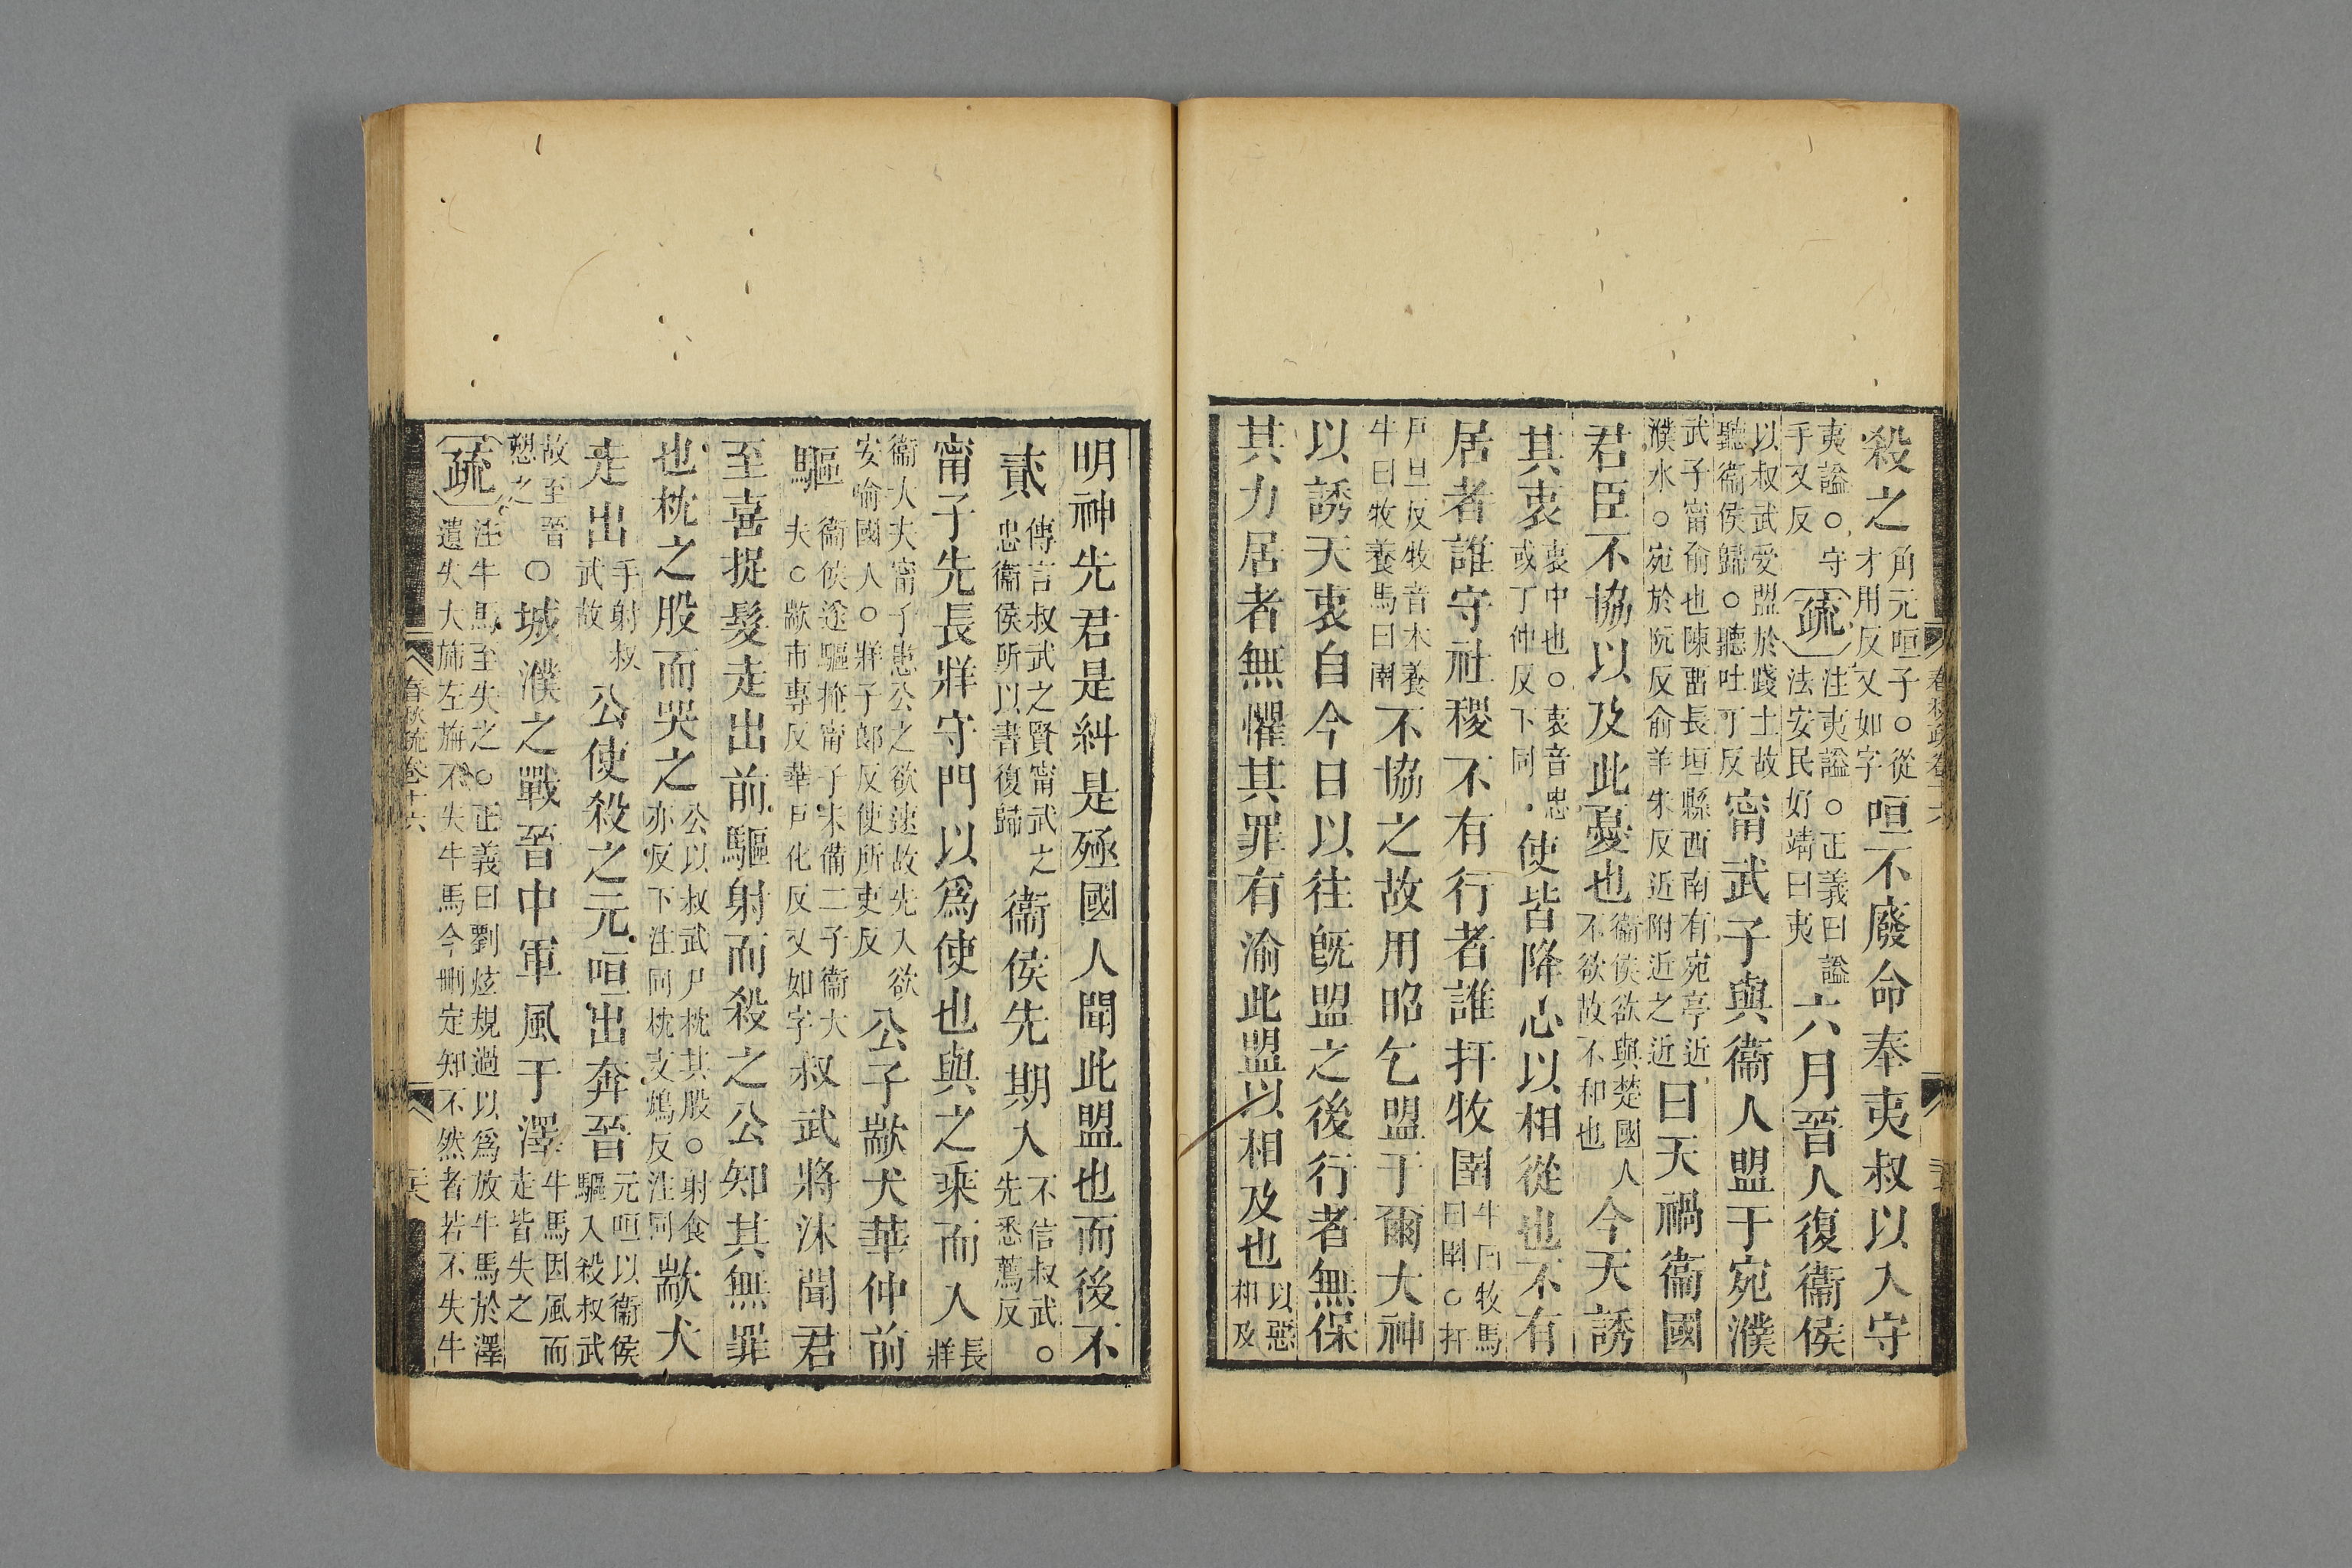 殺之角元咺子○從才用反又如字咺不廢命奉夷叔以入守
夷謚○守手又反疏注夷謚○正義曰謚法安民好靖曰夷六月晉人復衞侯
以叔武受盟於踐土故聽衞侯歸○聽吐丁反甯武子與衞人盟于宛濮
武子甯俞也陳畱長垣縣西南有宛亭近濮水○宛於阮反俞羊朱反近附近之近曰天禍衞國
君臣不協以及此憂也衞侯欲與楚國人不欲故不和也今天誘
其衷衷中也○衷音忠或丁仲反下同使皆降心以相從也不有
居者誰守社稷不有行者誰扞牧圉牛曰牧馬曰圉○扞
戸旦反牧音木養牛曰牧養馬曰圉不協之故用昭乞盟于爾大神
以誘天衷自今日以往旣盟之後行者無保
其力居者無懼其罪有渝此盟以相及也以惡相及
明神先君是糾是殛國人聞此盟也而後不
貳傳言叔武之賢甯武之忠衞侯所以書復歸衞侯先期入不信叔武○先悉薦反
甯子先長牂守門以爲使也與之乘而入長牂
衞大夫甯子患公之欲速故先入欲安喻國人○牂子郎反使所吏反公子歂犬華仲前
驅衞侯遂驅掩甯子未備二子衞大夫○歂市專反華戸化反又如字叔武將沐聞君
至喜捉髮走出前驅射而殺之公知其無罪
也枕之股而哭之公以叔武尸枕其股○射食亦反下注同枕支鴆反注同歂犬
走出手射叔武故公使殺之元咺出奔晉元咺以衞侯驅入殺叔武
故至晉愬之○城濮之戰晉中軍風于澤牛馬因風而走皆失之
疏注牛馬至失之○正義曰劉炫規過以爲放牛馬於澤遺失大旆左旃不失牛馬今刪定知不然者若不失牛
春秋疏卷十六